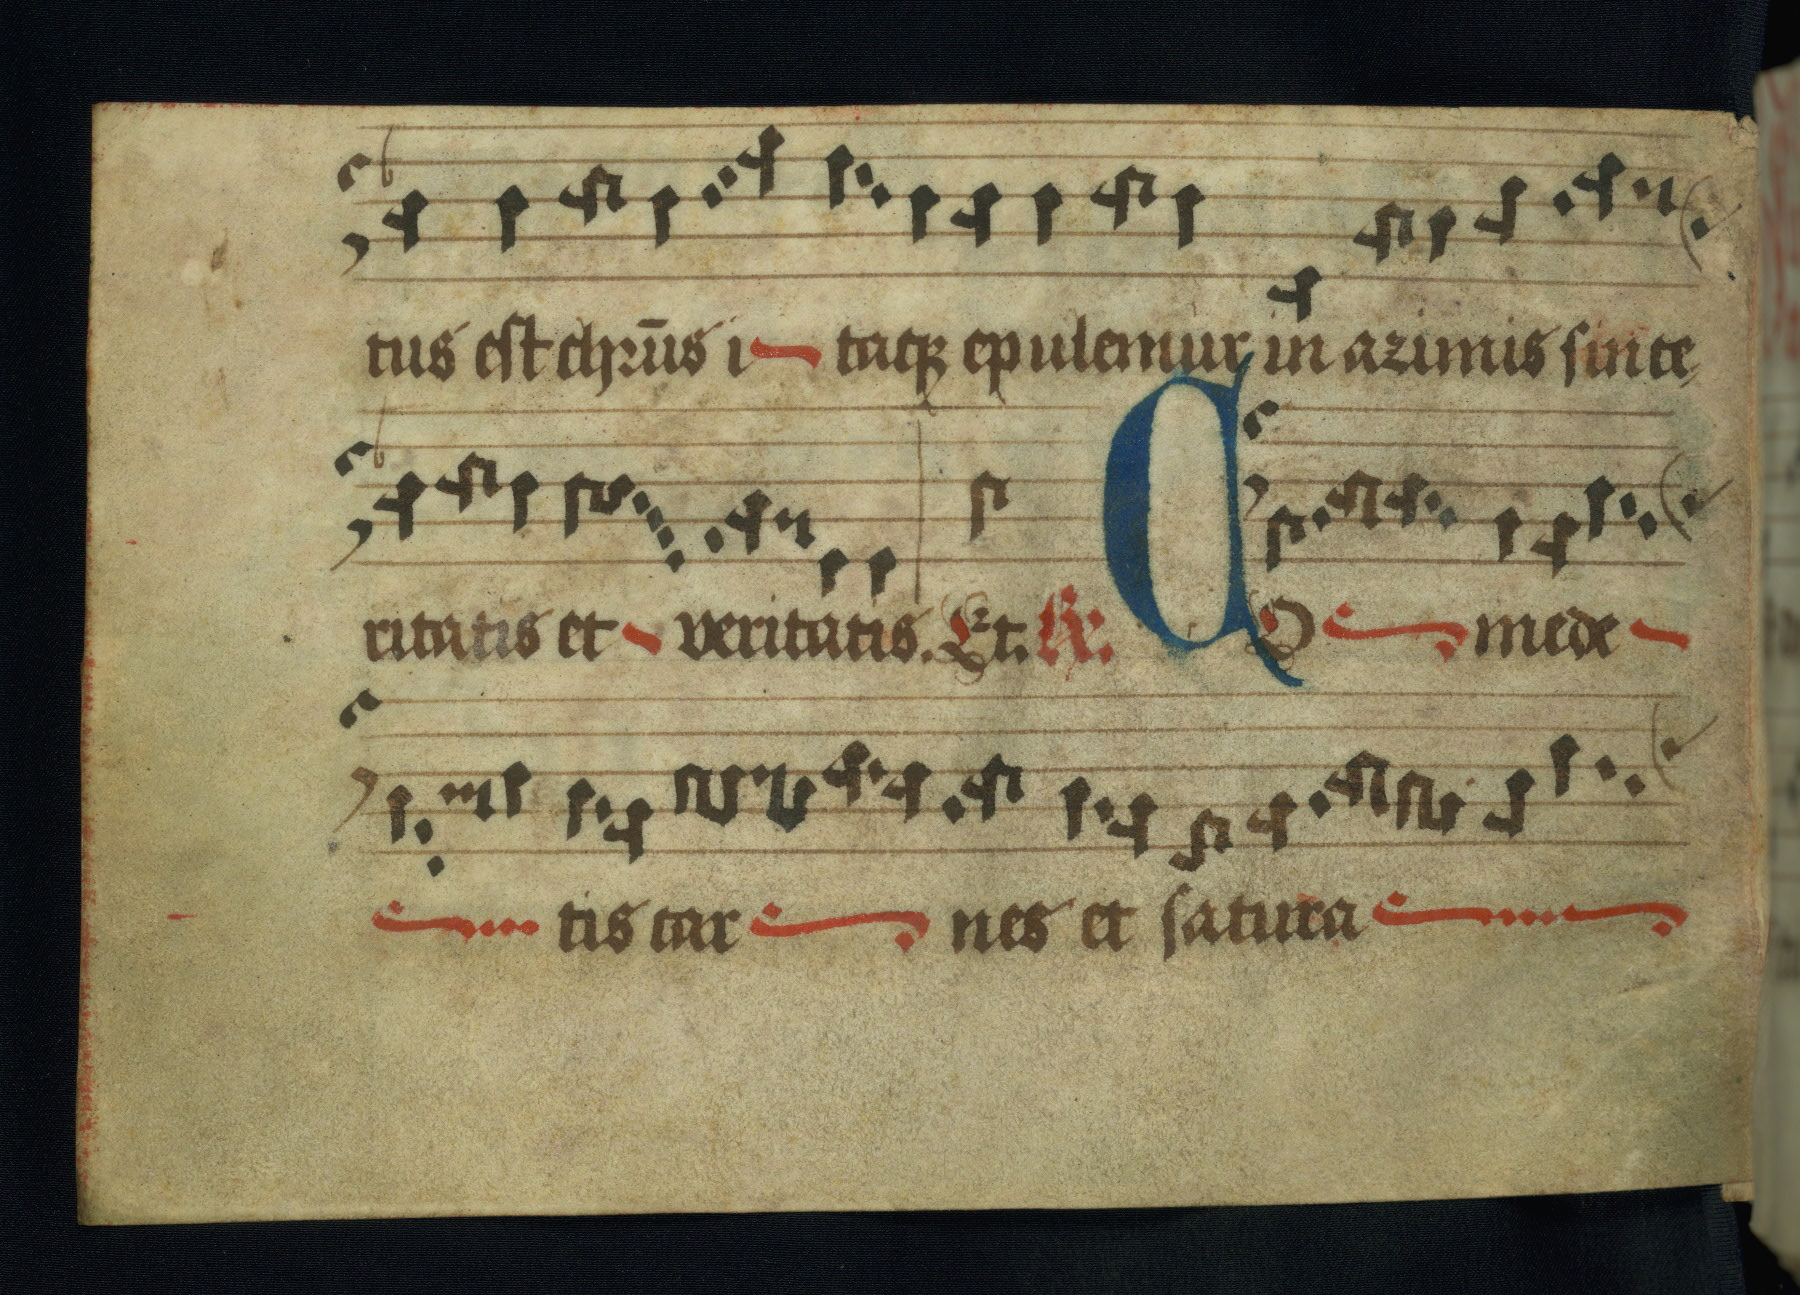 tus est chrūs i taqꝫ epulemur in azimis since
ritatis et veritatis. Et. ℟. CO mede
tis car nes et satura